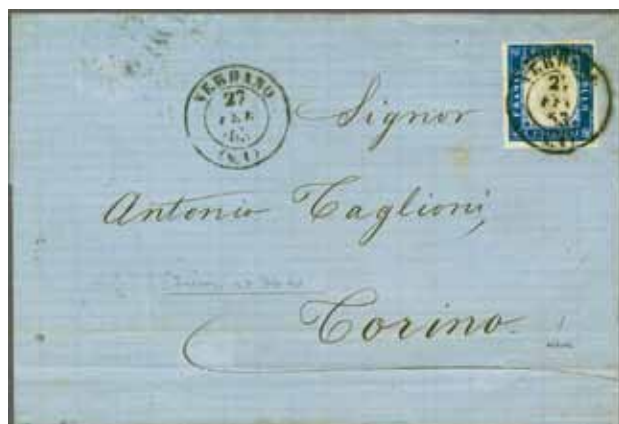 VERBANO
27
FEB
63
(N. 1)
VERBANO
27
FEB
63
(N. 1)
Signor
Antonio Taglioni,
Torino.